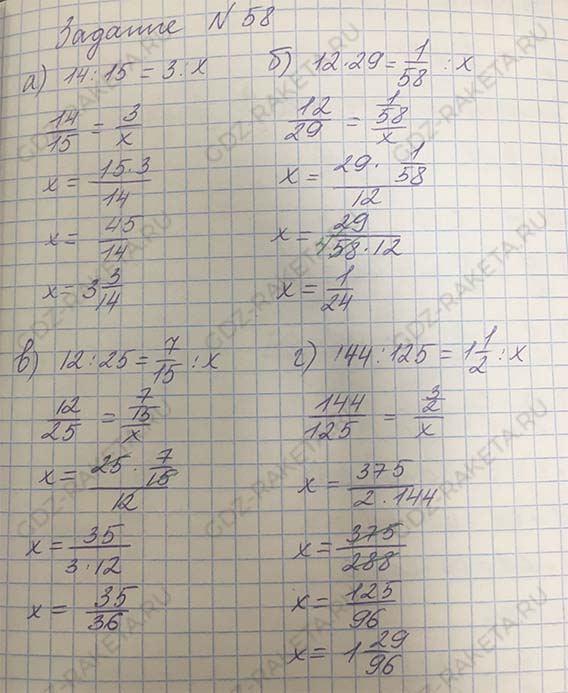 Задание N 58
а) 14 : 15 = 3 : x
14/15 = 3/x
x = 15·3/14
x = 45/14
x = 3 3/14
б) 12·29 = 1/58 : x
12/29 = 1/58/x
x = 29· 1/58/12
x = 29/58·12
x = 1/24
в) 12 : 25 = 7/15 : x
12/25 = 7/15/x
x = 25 · 7/15/12
x = 35/3·12
x = 35/36
г) 144 : 125 = 1 1/2 : x
144/125 = 3/2/x
x = 375/2·144
x = 375/288
x = 125/96
x = 1 29/96
GDZ-RAKETA.RU